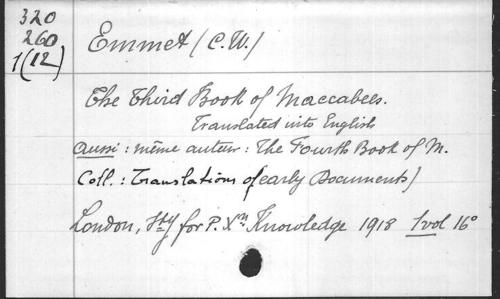 320
260
1(12)
Emmet (C.W.)
The Third Book of Maccabees.
Translated into English
aussi : même auteur : The Fourth Book of M.
Coll. : Translations of (early Documents)
London, Sty for P. Xn Knowledge 1918 1 vol 16°